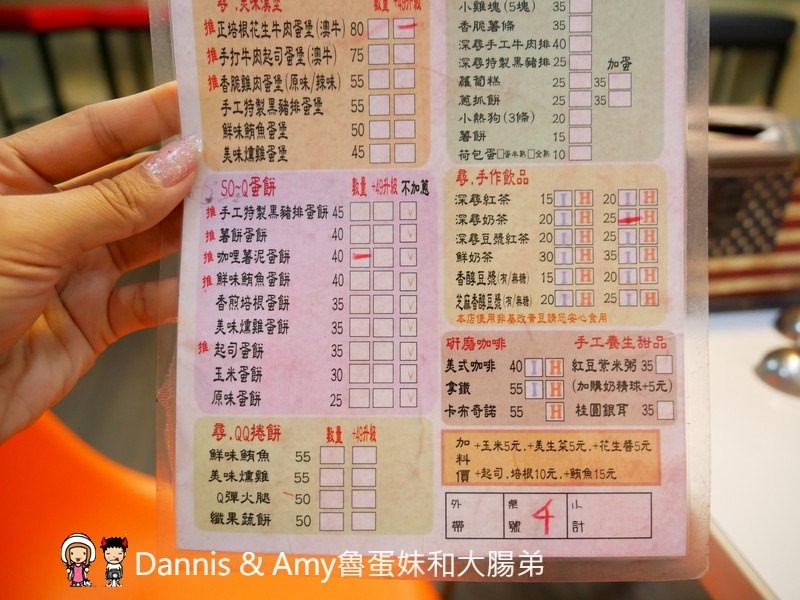 尋.美味漢堡 數量 +49升級
推 正培根花生牛肉蛋堡(澳牛) 80
推 手打牛肉起司蛋堡(澳牛) 75
推 香脆雞肉蛋堡(原味/辣味) 55
手工特製黑豬排蛋堡 55
鮮味鮪魚蛋堡 50
美味燻雞蛋堡 45
SO~Q蛋餅 數量 +49升級 不加蔥
推 手工特製黑豬排蛋餅 45
推 薯餅蛋餅 40
推 咖哩薯泥蛋餅 40
推 鮮味鮪魚蛋餅 40
香煎培根蛋餅 35
美味燻雞蛋餅 35
推 起司蛋餅 35
玉米蛋餅 30
原味蛋餅 25
尋.QQ捲餅 數量 +49升級
鮮味鮪魚 55
美味燻雞 55
Q彈火腿 50
纖果蔬餅 50
小雞塊(5塊) 35
香脆薯條 35
深尋手工牛肉排 40
深尋特製黑豬排 25
加蛋
蘿蔔糕 25 35
蔥抓餅 25 35
小熱狗(3條) 20
薯餅 15
荷包蛋 □蛋半熟 □全熟 10
尋.手作飲品
深尋紅茶 15 I H 20 I H
深尋奶茶 20 I H 25 I H
深尋豆漿紅茶 20 I H 25 I H
鮮奶茶 30 I H 35 I H
香醇豆漿(有/無糖) 15 I H 20 I H
芝麻香醇豆漿(有/無糖) 20 I H 25 I H
本店使用非基改黃豆請您安心食用
研磨咖啡
美式咖啡 40 I H
拿鐵 55 I H
卡布奇諾 55 H
手工養生甜品
紅豆紫米粥 35
(加購奶精球+5元)
桂圓銀耳 35
加料價 +玉米5元.+美生菜5元.+花生醬5元
+起司.培根10元.+鮪魚15元
外帶 桌號 4 小計
Dannis & Amy魯蛋妹和大腸弟